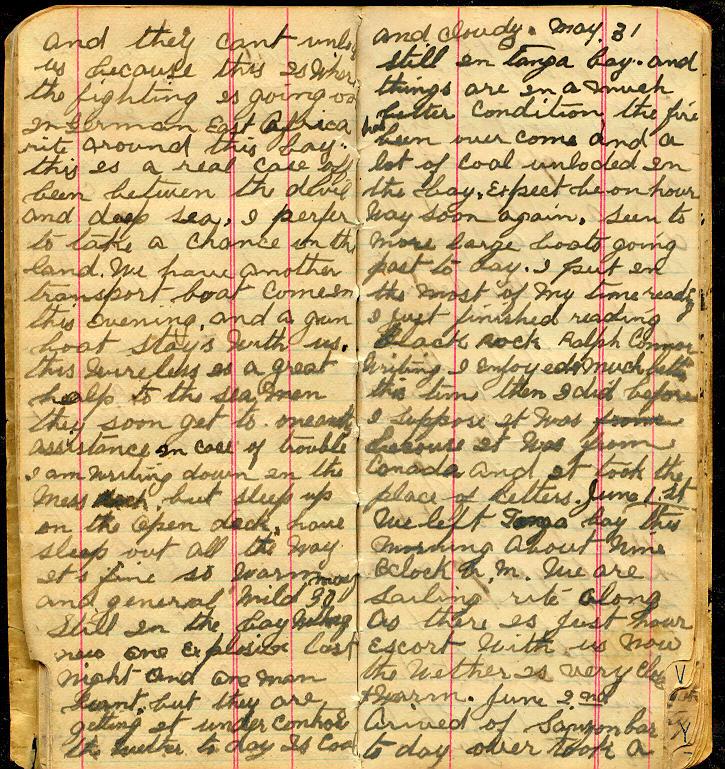 and they cant unlo
us because this is Wher
the fighting is going on
in German East Africa
rite around this bay.
this is a real case of
been between the devil
and deep sea, I perfer
to take a chance in the
land. We have another
transport boat come in
this evening, and a gun
boat stay's with us.
this wireless is a great
healp to the sea men
they soon get to one anoth
assistance in case of trouble
I am writing down in the
Mess but sleep up
on the open deck, have
sleep out all the way
it's fine so warm
and general Mild May 30
Still in the bay
new one Explosion last
night and one man
burnt, but they are
getting it under control
the wether to day is cool
and cloudy. May. 31
still in tanga bay. and
things are in a much
better condition, the fire
has been over come and a
lot of coal unloded in
the bay. Expect be on hour
Way soon again. Seen to
more large boats going
past to day. I put in
the most of my time readg
I just finished reading
Black rock Ralph Connor
Writing I enjoyed Much bette
this time then I did before
I suppose it was from
because it was from
Canada and it took the
place of letters. June 1 st
We left Tanga bay this
Morning About Nine
Oclock A. M. We are
Sailing rite along
As there is just hour
Escort With us Now
the Wether is very Cle
& Warm. June 2nd
Arived at Sansonbar
to day over took a